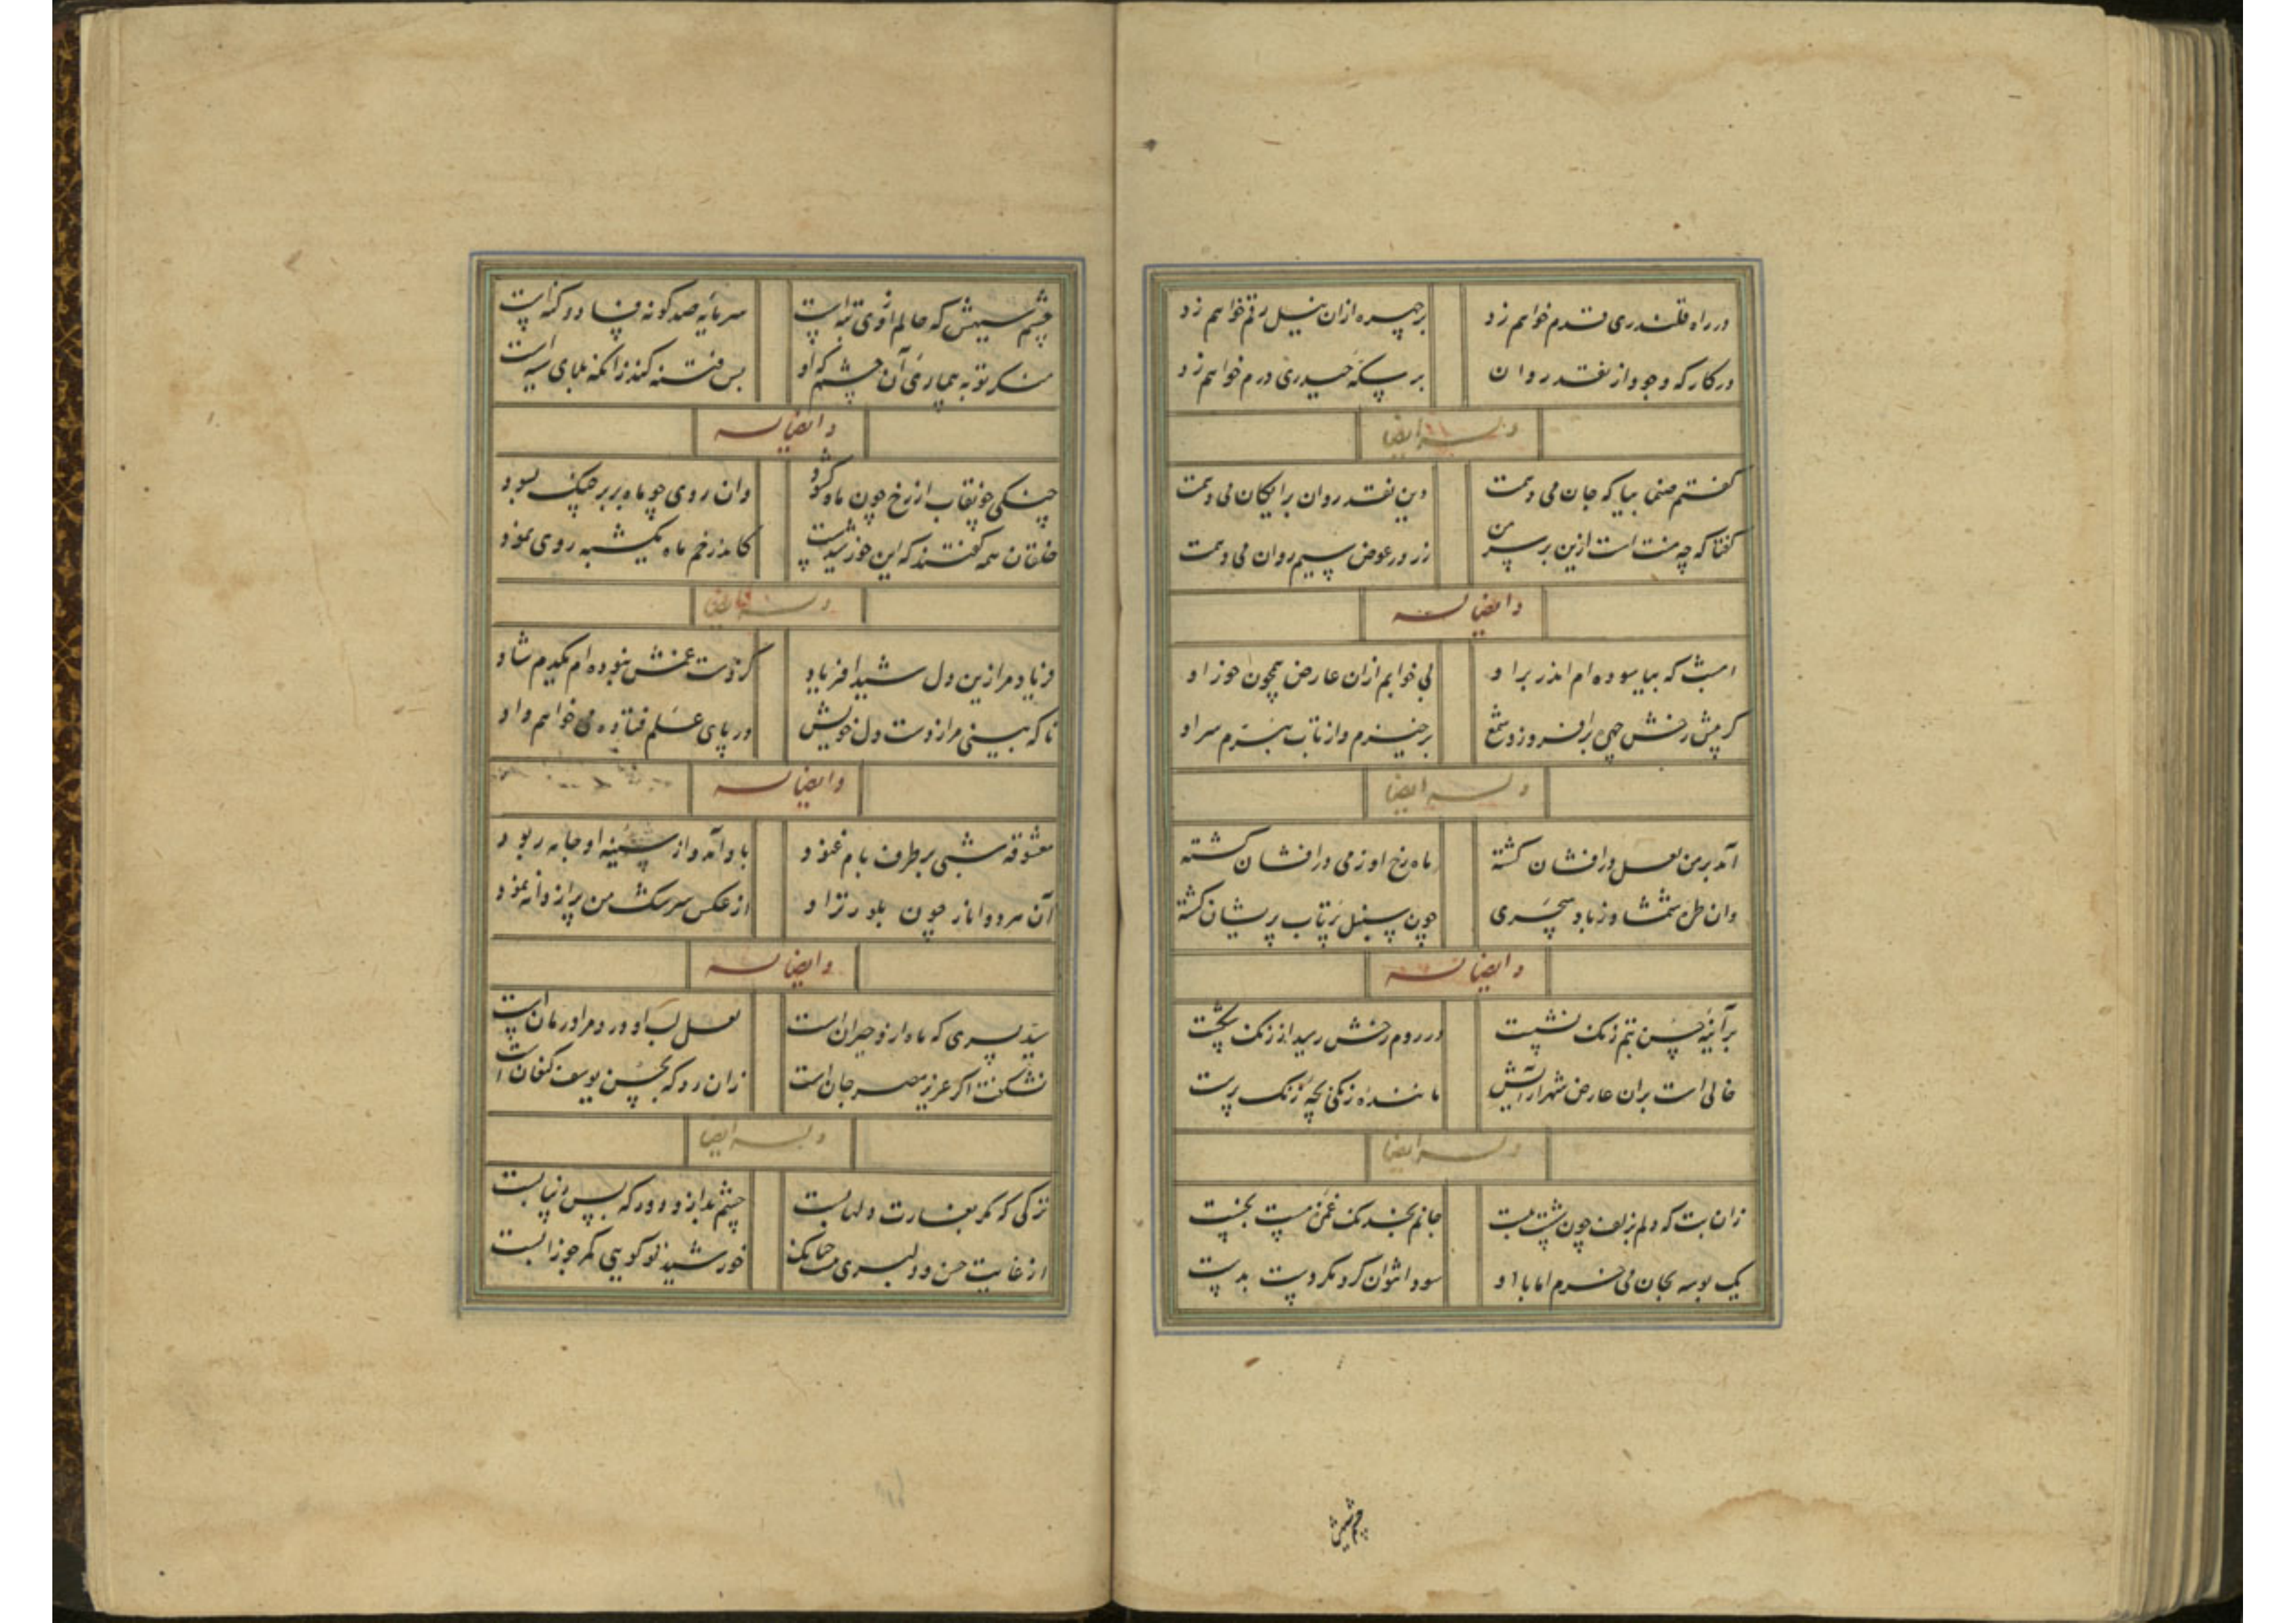 در راه قلندری قدم خواهم زد
بر چهره ازان نیل رقم خواهم زد
در کار که وجود از نقد روان
بر سکهٔ حیدری درم خواهم زد
وله ایضا
گفتم صنما بیا که جان می دهمت
وین نقد روان برایگان می دهمت
گفتا که چه منت است ازین بر سر من
زر در عوض سیم روان می دهمت
وایضا له
امشب که بیاسوده ام اندر بر او
بی خوابم ازان عارض همچون خور او
گر پیش رخش چهره برافروزد شمع
برخیزم و از تاب ببرم سر او
وله ایضا
آمد بر من لعل درافشان گشته
ماه رخ او ز می درافشان گشته
وان طره شمشاد ز باد سحری
چون سنبل پرتاب پریشان گشته
وایضا له
بر آینهٔ حسن بتم زنک نشست
در روم رخش رسید از زنک شکست
خالی است بران عارض شهرآرایش
مانندهٔ زنگی بچهٔ زنک پرست
وله ایضا
زان بت که دلم بزلف چون شست ببست
جانم بخدنک غمزه مست بخست
یک بوسه بجان می خرم اما با او
سودا نتوان کرد مگر دست بدست
چشم سیهش
چشم سیهش که عالم از وی تبه است
سرمایه صد گونه فساد و گنه است
منگر تو به بیماری آن چشم که او
بس فتنه کند زانکه بلای سیه است
وایضا له
چنگی چو نقاب از رخ چون ماه گشود
وان روی چو ماه بر بر چنگ بسود
خلقان همه گفتند که این خورشید است
کاندر خم ماه یکشبه روی نمود
وله ایضا
فریاد مرا زین دل شیدا فریاد
کز دست غمش نبوده ام یکدم شاد
تا که بینی مرا ز دست دل خویش
در پای علم فتاده می خواهم داد
وایضا له
معشوقه شبی بر طرف بام غنود
باد آمد و از سینه او جامه ربود
آن هر دو انار چون بلور تر او
از عکس سرشک من پر از دانه نمود
وایضا له
سید پسری که ماه ازو حیران است
لعل لب او درد مرا درمان است
نشکفت اگر عزیز مصر جان است
زان رو که بحسن یوسف کنعان است
وله ایضا
ترکی که کمر بغارت دلها بست
چشم بد ازو دور که بس زیبا بست
از غایت حسن و دلبری
خورشید تو گویی کمر جوزا بست